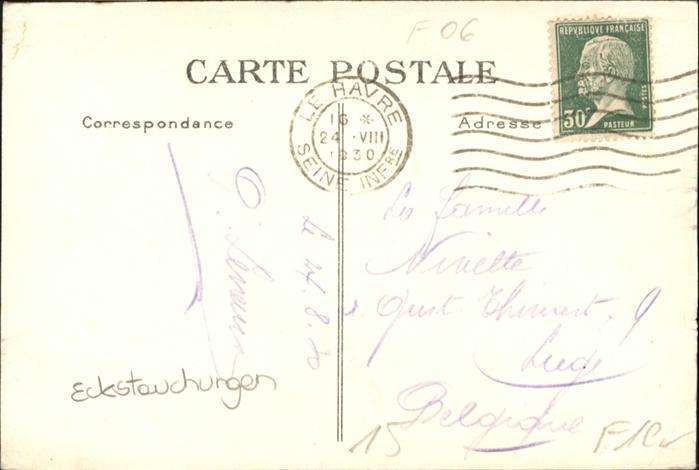 F 06
RÉPUBLIQUE FRANÇAISE
POSTES
30c
PASTEUR
CARTE POSTALE
LE HAVRE
16 *
24 VIII
1930
SEINE INFRE
Correspondance
Adresse
Le 24.8.30
La famille
Ninette
9
Belgique
Eckstauchungen
15